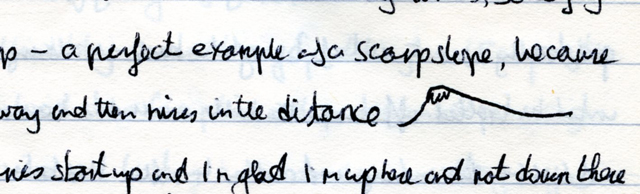 p – a perfect example of a scarp slope, because
way and then rises in the distance
start up and I'm glad I'm up here and not down there